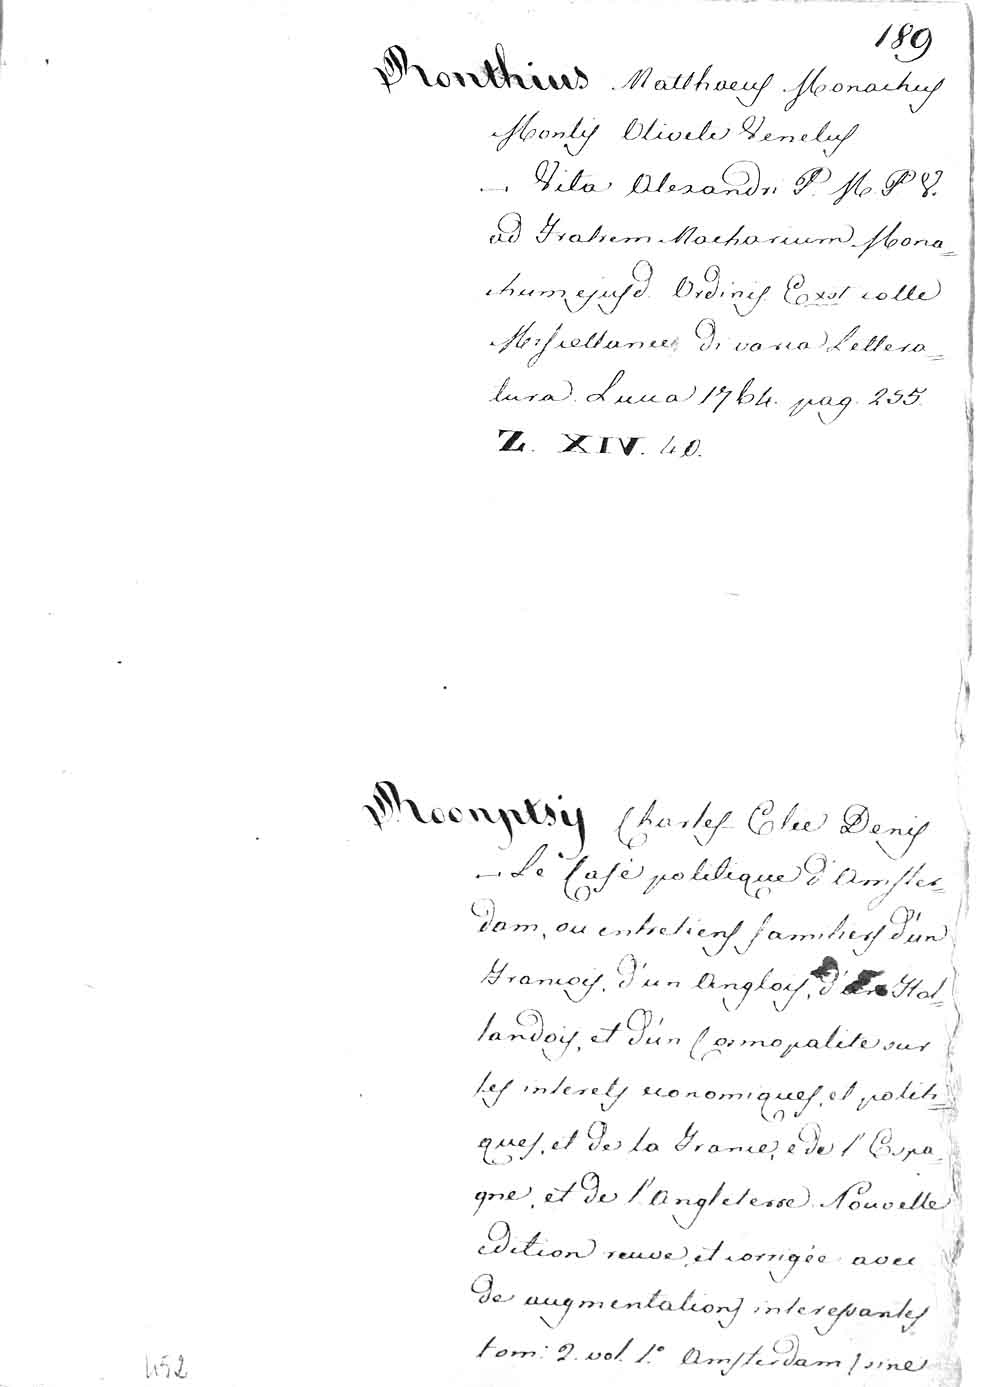 189
Ronthius Matthaeus Monachus
Montis Oliveti Venetus
— Vita Alexandri P. M. P V.
ad Fratrem Macharium Mona=
chum ejusd. Ordinis Exst colle
Miscellanee di varia Lettera=
tura. Lucca 1764. pag. 255.
Z. XIV. 40.
Roonptsij Charles Elie Denis
— Le Cafè politique d'Amster=
dam, ou entretiens familiers d'un
François, d'un Anglois, d'un Hol=
landois, et d'un Cosmopalite sur
les interets economiques, et politi=
ques, et de la France, e de l'Espa=
gne, et de l'Angleterre. Nouvelle
edition reuve, et corrigée avec
de augmentations interessantes
tom: 2. vol. 1.° Amsterdam (sine
452